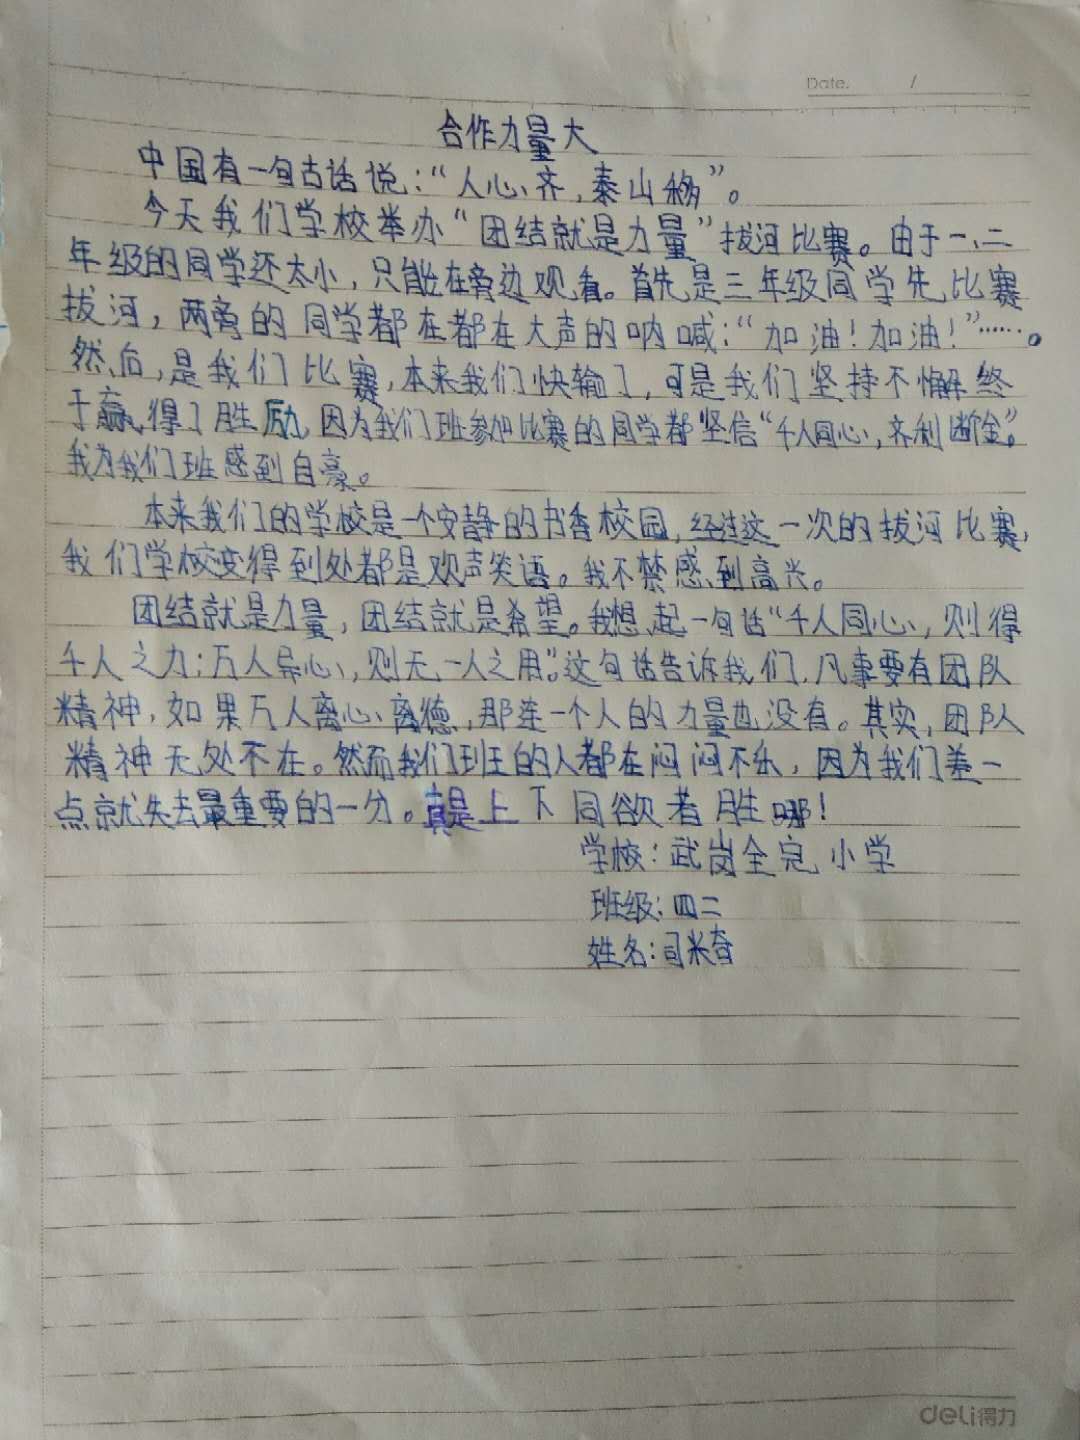 Date. /
合作力量大
中国有一句古话说：“人心齐，泰山移”。
今天我们学校举办“团结就是力量”拔河比赛。由于一、二
年级的同学还太小，只能在旁边观看。首先是三年级同学先比赛
拔河，两旁的同学都在都在大声的呐喊：“加油！加油！”……。
然后，是我们比赛，本来我们快输了，可是我们坚持不懈终
于赢得了胜励，因为我们班参加比赛的同学都坚信“千人同心，齐利断金”。
我为我们班感到自豪。
本来我们的学校是一个安静的书香校园，经过这一次的拔河比赛，
我们学校变得到处都是欢声笑语。我不禁感到高兴。
团结就是力量，团结就是希望。我想起一句话“千人同心，则得
千人之力；万人异心，则无一人之用”。这句话告诉我们，凡事要有团队
精神，如果万人离心离德，那连一个人的力量也没有。其实，团队
精神无处不在。然而我们班的人都在闷闷不乐，因为我们差一
点就失去最重要的一分。真是上下同欲者胜哪！
学校：武岗全完小学
班级：四二
姓名：司米奇
deli得力